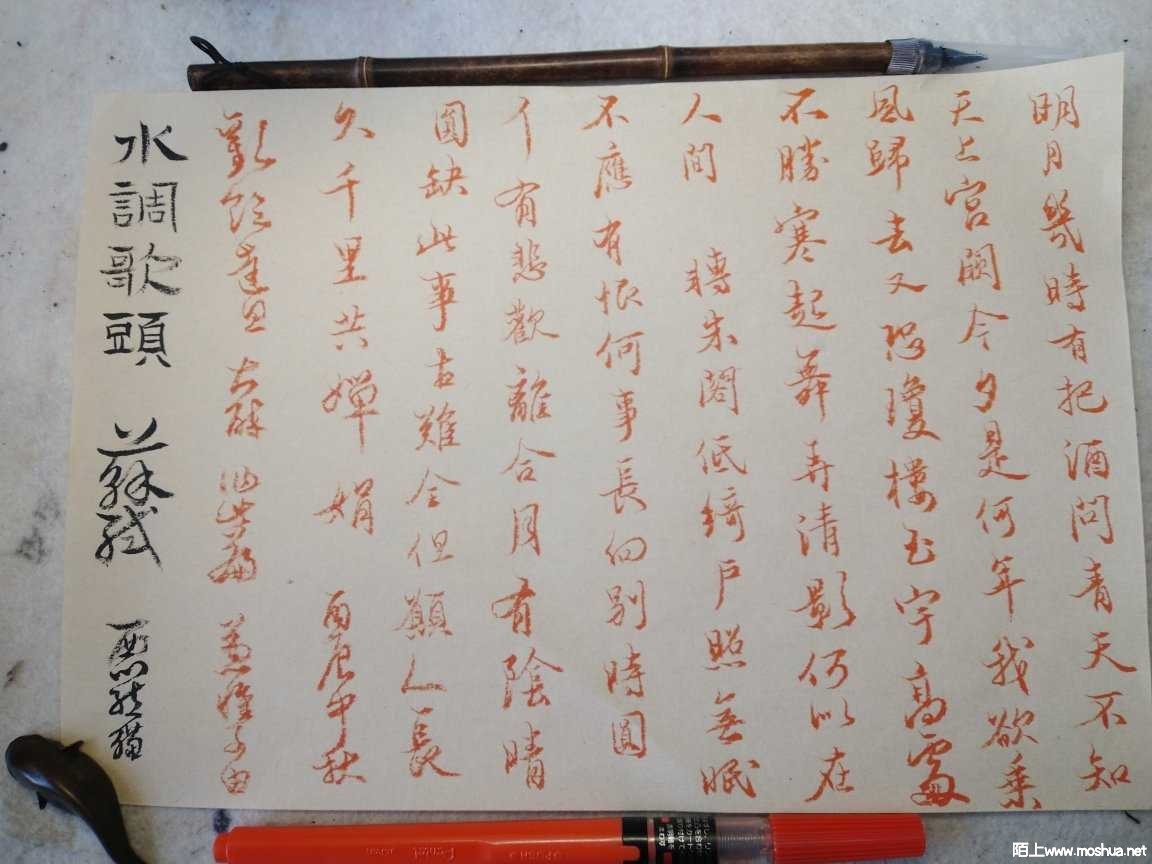 明月幾時有把酒問青天不知
天上宮闕今夕是何年我欲乘
風歸去又恐瓊樓玉宇高處
不勝寒起舞弄清影何似在
人間 轉朱閣低綺戶照無眠
不應有恨何事長向別時圓
人有悲歡離合月有陰晴
圓缺此事古難全但願人長
久千里共嬋娟 丙辰中秋
歡飲達旦 大醉 作此篇 兼懷子由
水調歌頭 蘇軾
Pentel
陌上www.moshua.net